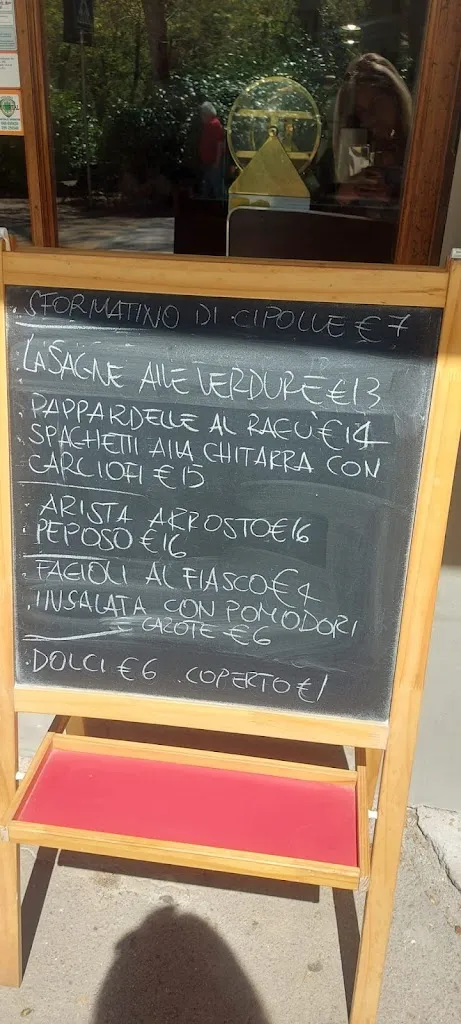 . SFORMATINO DI CIPOLLE €7
. LASAGNE ALLE VERDURE €13
. PAPPARDELLE AL RAGÙ €14
. SPAGHETTI ALLA CHITARRA CON
CARCIOFI €15
. ARISTA ARROSTO €16
. PEPOSO €16
. FAGIOLI AL FIASCO €4
. INSALATA CON POMODORI
E CAROTE €6
. DOLCI €6 . COPERTO €1